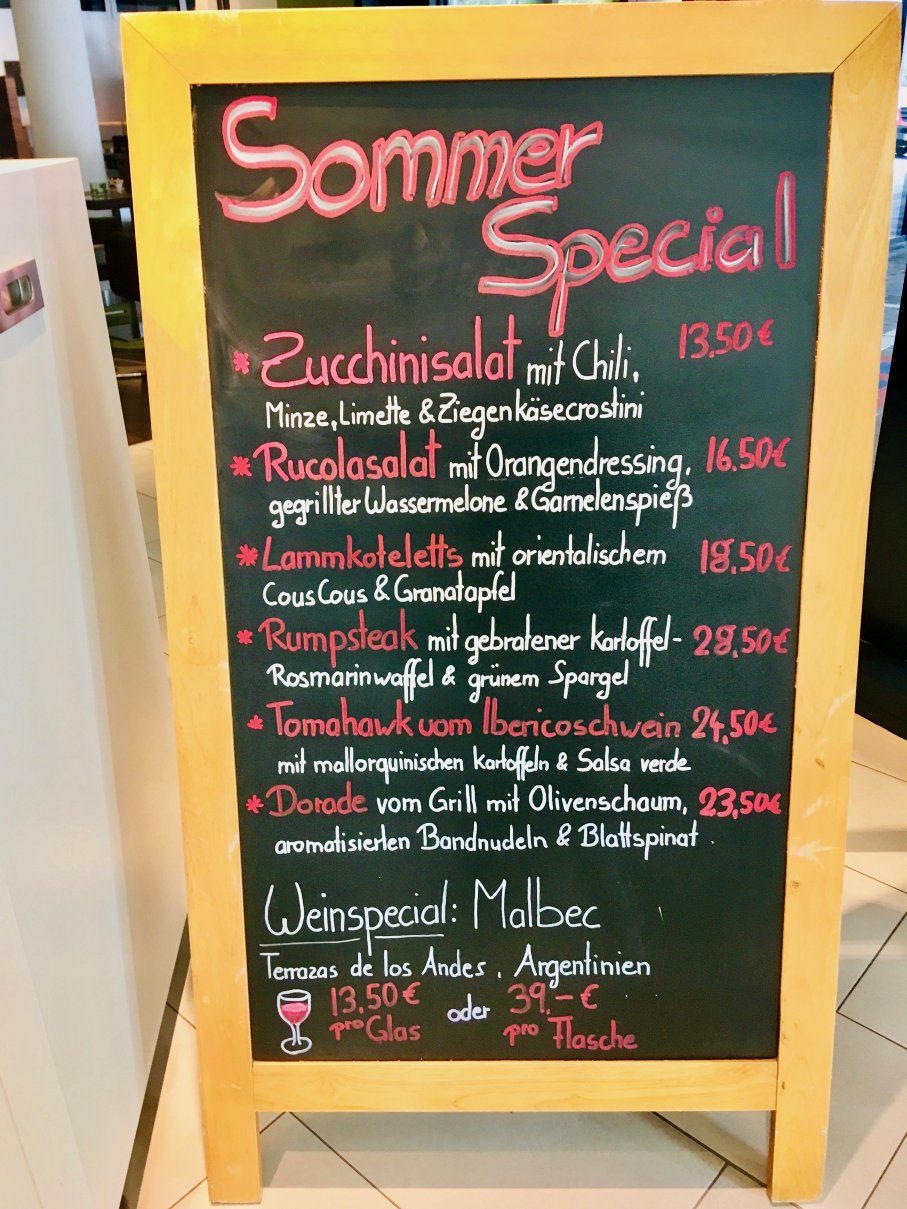 Sommer
Special
* Zucchinisalat mit Chili, 13,50 €
Minze, Limette & Ziegenkäsecrostini
* Rucolasalat mit Orangendressing, 16.50€
gegrillter Wassermelone & Garnelenspieß
* Lammkoteletts mit orientalischem 18,50€
CousCous & Granatapfel
* Rumpsteak mit gebratener Kartoffel- 28,50€
Rosmarinwaffel & grünem Spargel
* Tomahawk vom Ibericoschwein 24,50€
mit mallorquinischen Kartoffeln & Salsa verde
* Dorade vom Grill mit Olivenschaum, 23,50€
aromatisierten Bandnudeln & Blattspinat.
Weinspecial: Malbec
Terrazas de los Andes, Argentinien
13,50€ oder 39,-€
pro Glas pro Flasche